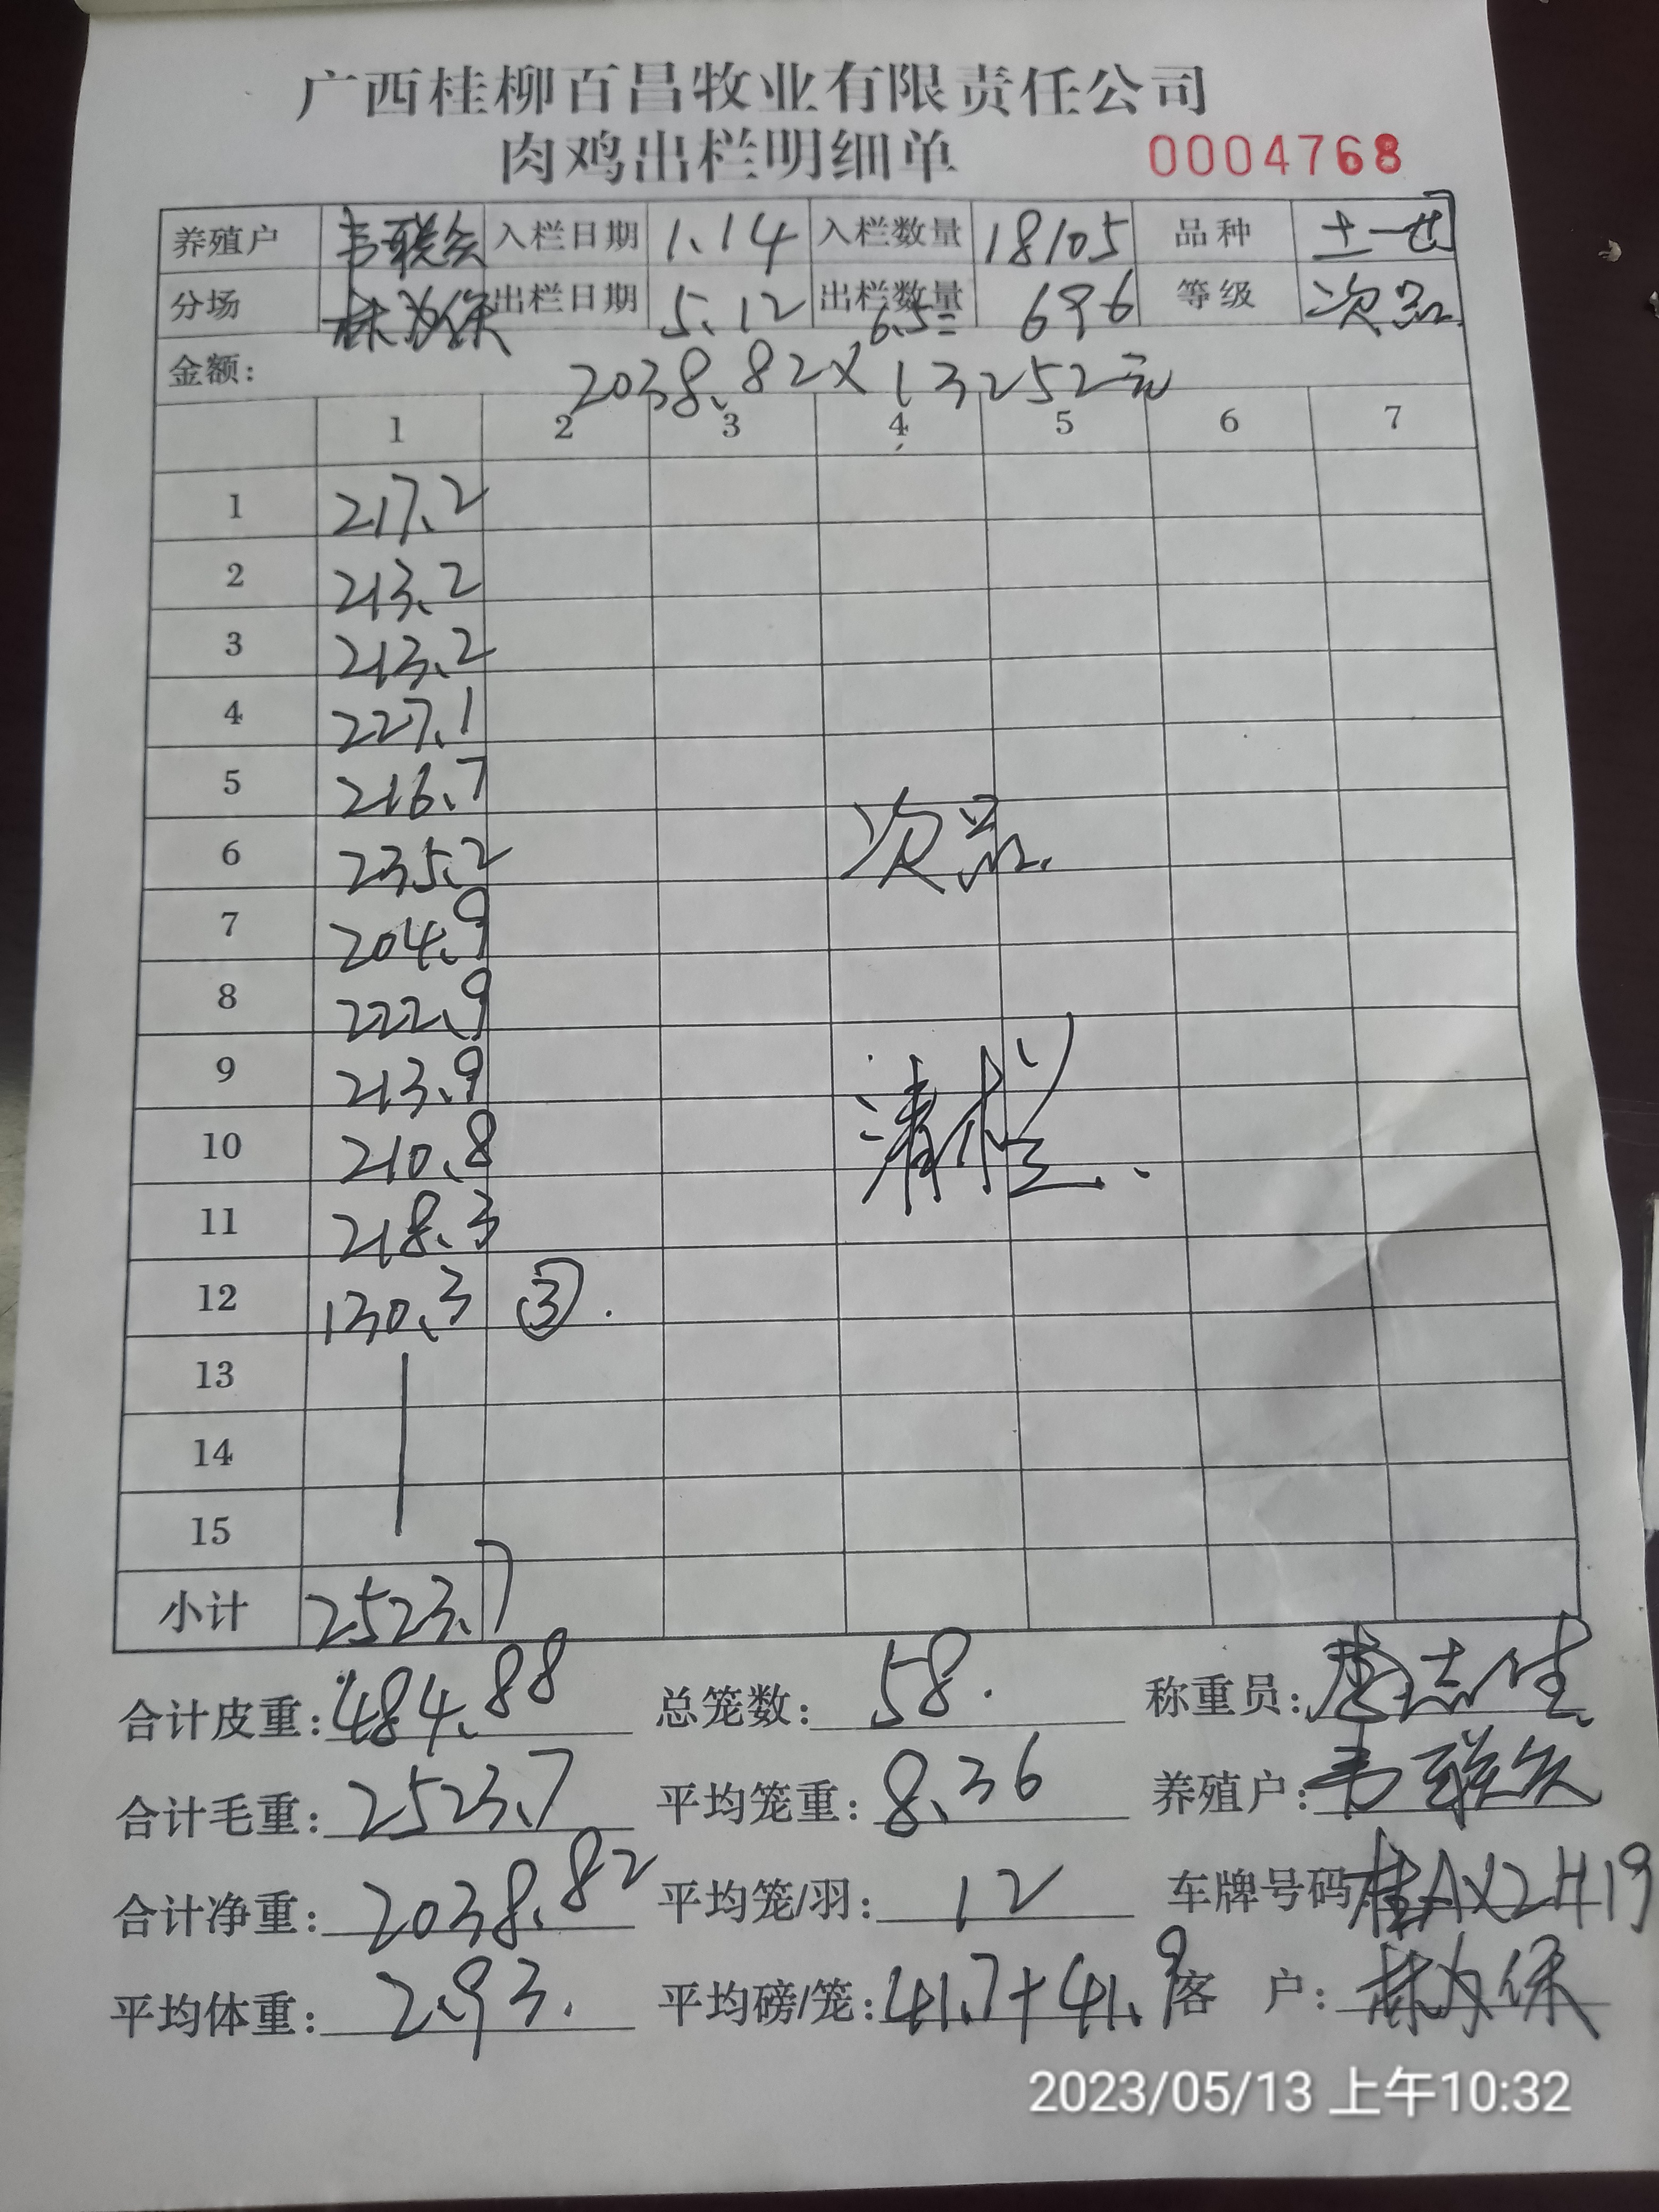 广西桂柳百昌牧业有限责任公司
肉鸡出栏明细单 0004768
养殖户 韦联会 入栏日期 1.14 入栏数量 18105 品种 土一
分场 林为保 出栏日期 5.12 出栏数量 696 等级 次品
金额: 2038.82×6.5=13252元
1 2 3 4 5 6 7
1 217.2
2 213.2
3 213.2
4 227.1
5 216.7
6 235.2
7 204.9 次品
8 222.9
9 213.9
10 210.8 清栏
11 218.3
12 130.3 ③.
13
14
15
小计 2523.7
合计皮重: 484.88 总笼数: 58. 称重员: 唐志生
合计毛重: 2523.7 平均笼重: 8.36 养殖户: 韦联会
合计净重: 2038.82 平均笼/羽: 12 车牌号码 桂AX2H19
平均体重: 2.93. 平均磅/笼: 41.7+41.9 客 户: 林为保
2023/05/13 上午10:32